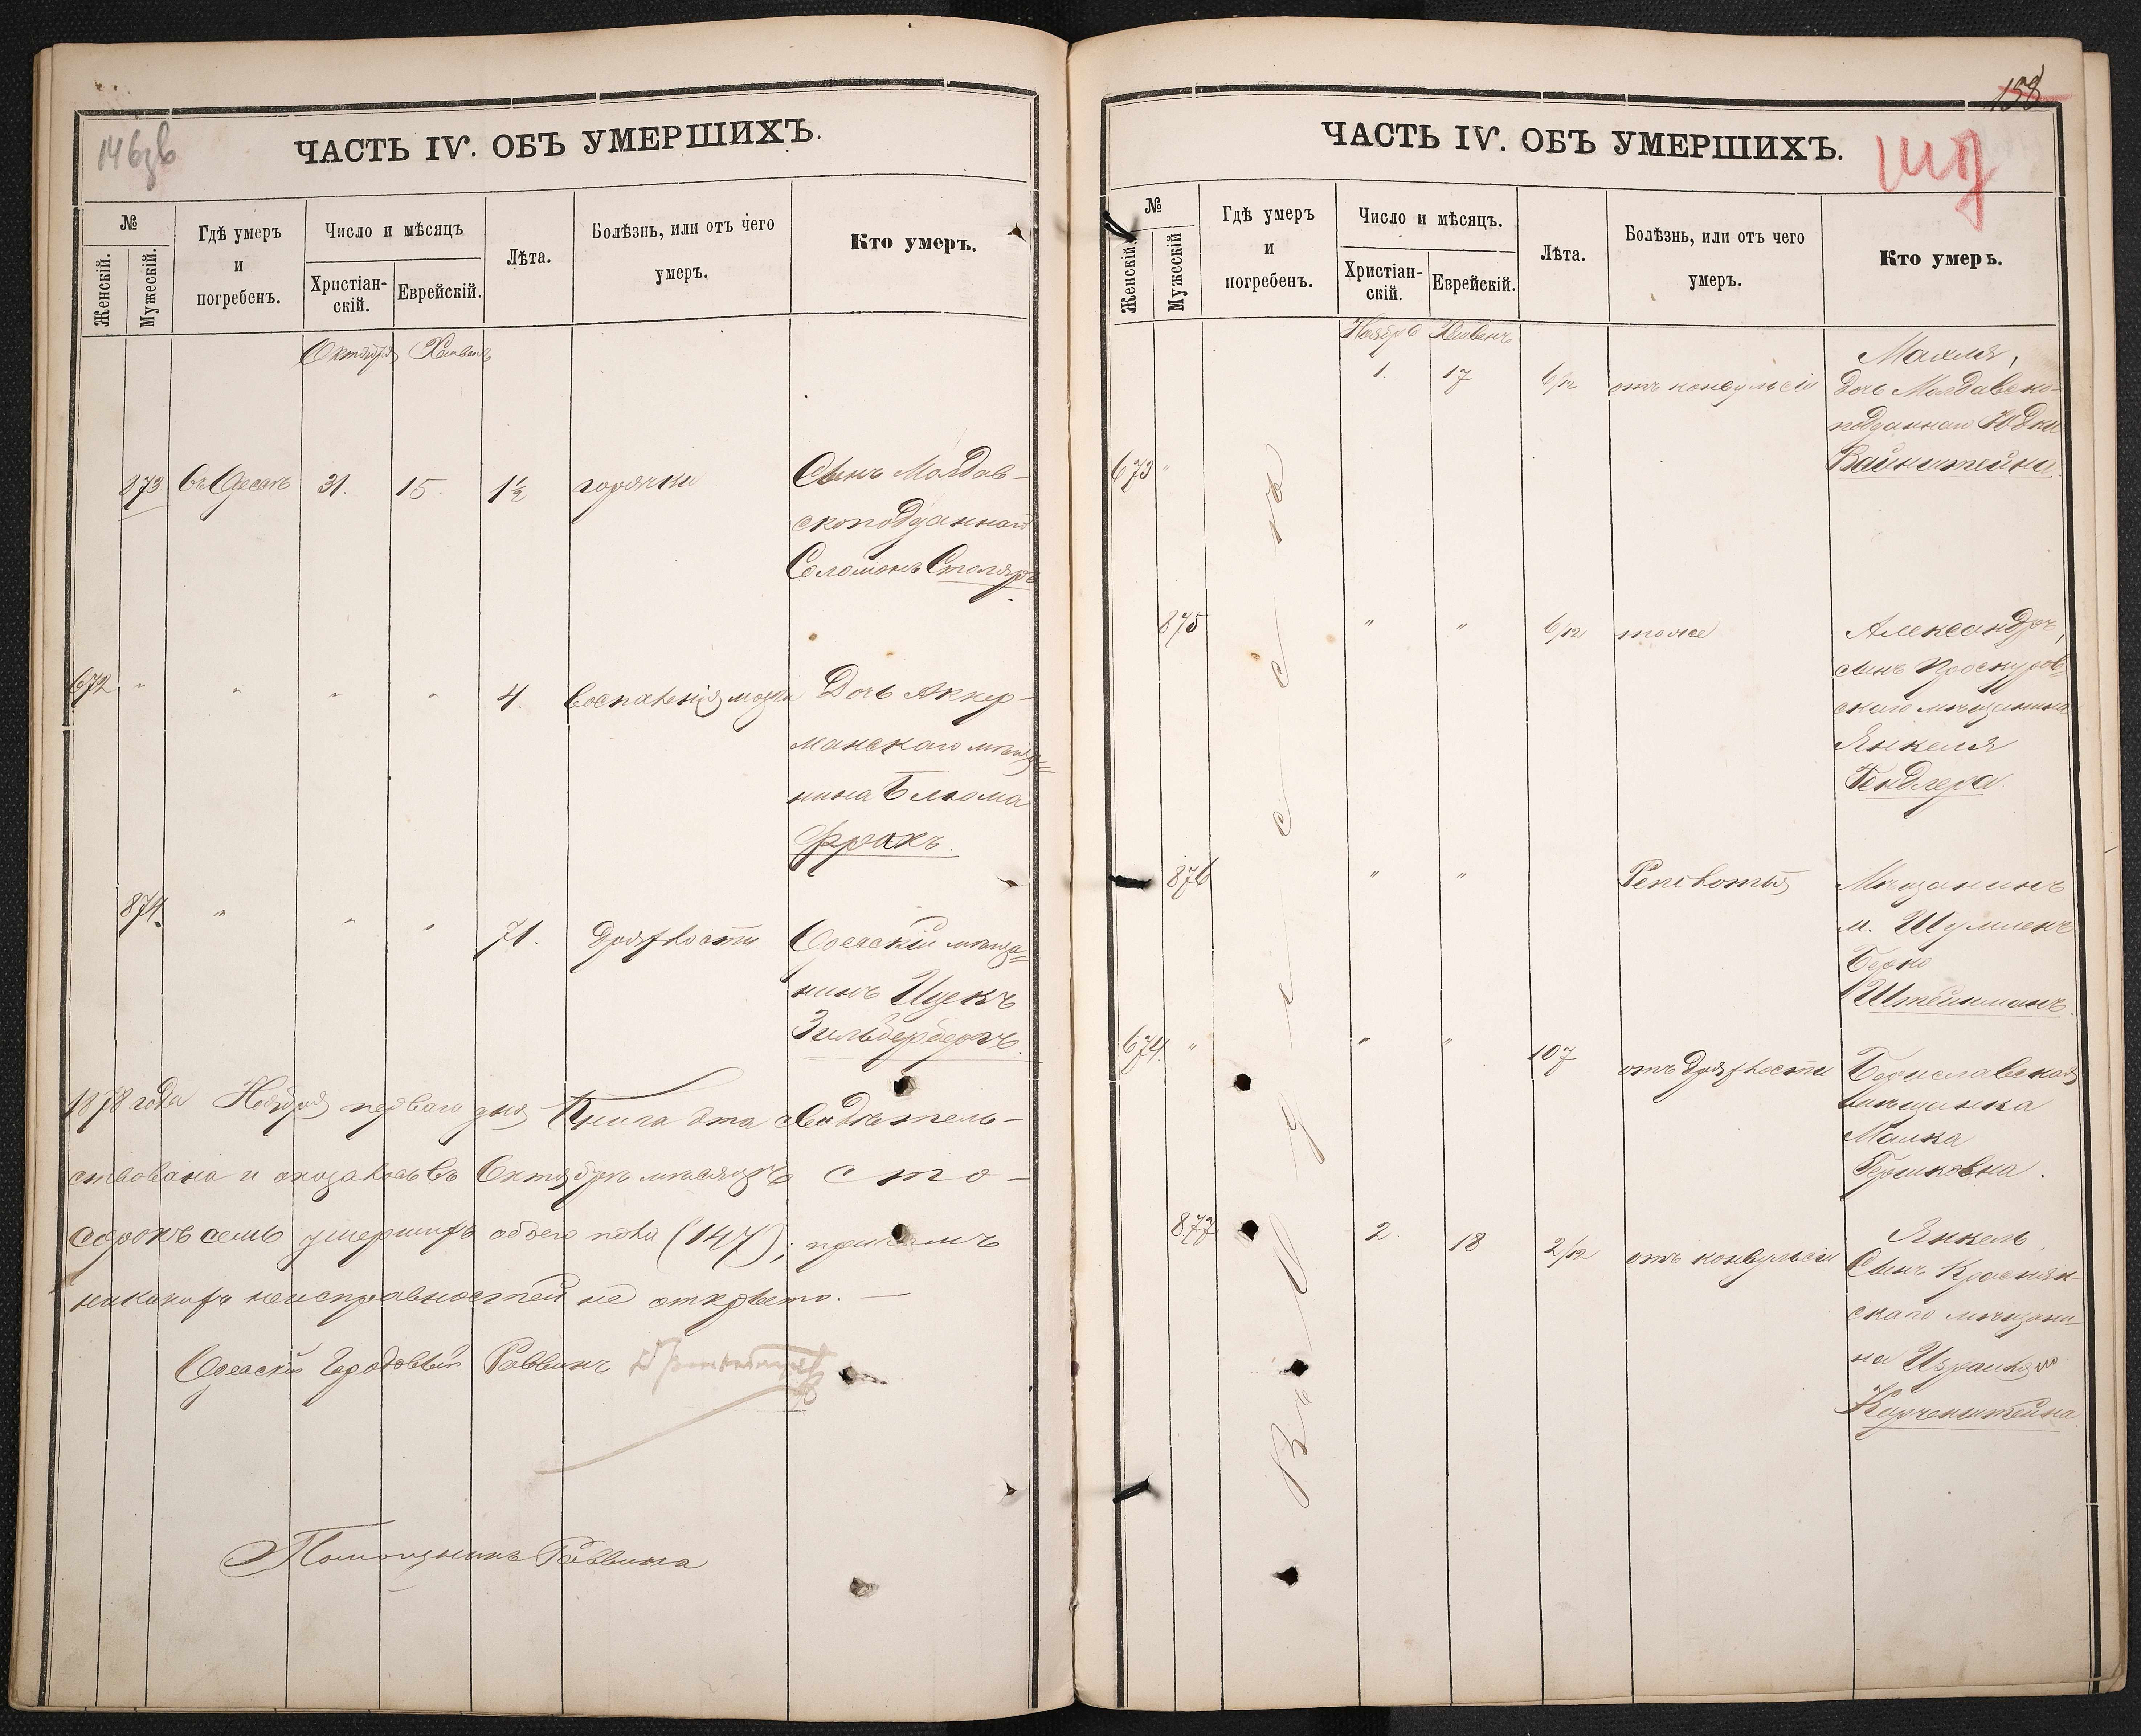 ЧАСТЬ IV. ОБЪ УМЕРШИХЪ.
№
Женскій.
Мужескій.
Гдѣ умеръ
и
погребенъ.
Число и мѣсяцъ
Христіан-
скій.
Еврейскій.
Лѣта.
Болѣзнь, или отъ чего
умеръ.
Кто умеръ.
Октября
873 въ Одессѣ 31. 15. 1½ горячки Сынъ Молдав-
скоподданнаго
Соломонъ Столяръ
672 " " " " 4. воспаленія мозга Дочь Аккер-
манскаго мѣща=
нина Блюма
Фракъ.
874. " " " 71. дряхлости Одесскій мѣща=
нинъ Ицекъ
Зильбербергъ.
1878 года Ноября перваго дня Книга эта свидѣтель-
ствована и оказалось въ Октябрѣ мѣсяцѣ сто-
сорокъ семь умершихъ обоего пола (147); причемъ
никакихъ неисправностей не открыто. —
Одесскій Городовый Раввинъ
Помощникъ Раввина
158
ЧАСТЬ IV. ОБЪ УМЕРШИХЪ.
№
Женскій.
Мужескій
Гдѣ умеръ
и
погребенъ.
Число и мѣсяцъ.
Христіан-
скій.
Еврейскій.
Лѣта.
Болѣзнь, или отъ чего
умеръ.
Кто умеръ.
Ноябрь
1. 17 6/12 отъ конвульсіи
Махля,
дочь Молдавско-
подданнаго Юдки
Вайнштейна
673 "
875 " " 6/12 тоже Александръ,
сынъ Проскуров-
скаго мѣщанина
Янкеля
Гендлера.
876 " " Мѣщанинъ
м.
Берко
Штейнманъ.
674. " " " 107 отъ дряхлости Бериславская
мѣщанка
Малка
Гершковна.
877 2. 18 2/12 отъ конвульсіи Янкель
Сынъ Краснян-
скаго мѣщани-
на Израиля
Въ Одессѣ